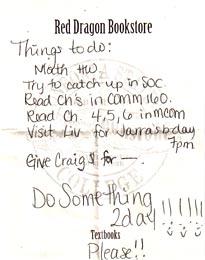 Red Dragon Bookstore
Things to do:
Math HW
Try to catch up in SOC.
Read Ch's in Comm 160.
Read Ch. 4,5,6 in mcom
Visit Liv for Jarra's bday
7pm
Give Craig $ for —.
Do Something
2day!!!!!!
Textbooks
Please!!